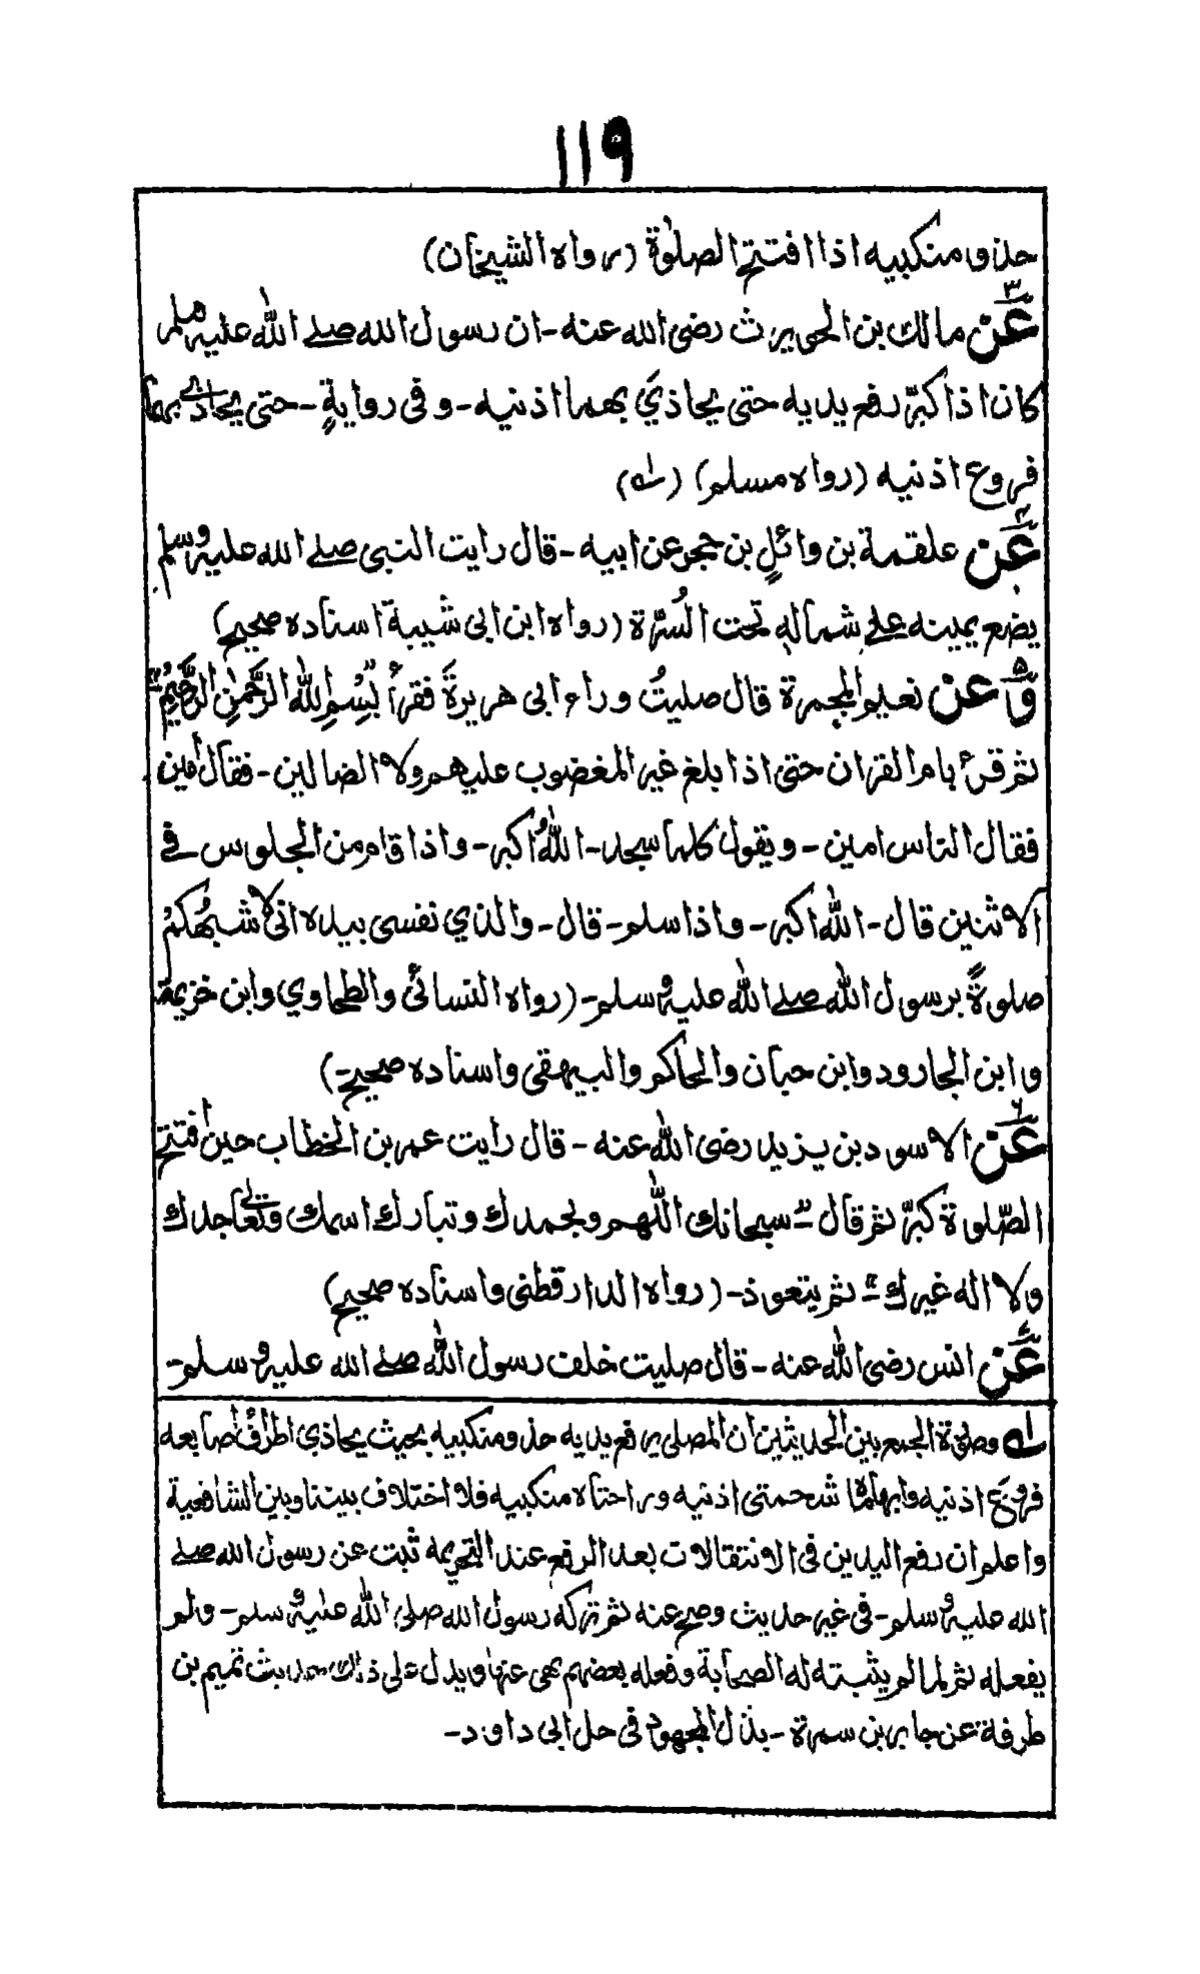 ١١٩
حذو منكبيه اذا افتتح الصلوٰة (رواه الشيخان)
٣ عَنْ مالك بن الحويرث رضی الله عنه - ان رسول الله صلے اللّٰه عليه وسلم
كان اذا كبرّ رفع يديه حتى يحاذيَ بهما اذنيه - وفی روايةٍ - حتى يحاذی بهما
فروع اذنيه (رواه مسلم) (لـه)
٤ عَنْ علقمة بن وائلٍ بن حجر عن ابيه - قال رايت النبی صلے الله عليه وسلم
يضع يمينه علے شماله تحت السُرّة (رواه ابن ابی شيبة اسناده صحيح)
٥ وَ عن نعيم المجمرة قال صليتُ وراء ابی هريرةَ فقرأ "بِسْمِ اللهِ الرَّحْمٰنِ الرَّحِيْمِ"
ثم قرء بام القران حتى اذا بلغ غير المغضوب عليهم ولا الضالين - فقال اٰمين
فقال الناس امين - ويقول كلما سجد - اللّٰهُ اكبر - واذا قام من الجلوس فے
الاثنين قال - اللّٰه اكبر - واذا سلم - قال - والذي نفسی بيده انی لاشبهُكمْ
صلوةً برسول اللّٰه صلے اللّٰه عليه وسلم - (رواه النسائی والطحاوي وابن خزيمة
وابن الجارود وابن حبان والحاكم والبيهقی واسناده صحيح -)
٦ عَنْ الاسود بن يزيد رضی اللّٰه عنه - قال رايت عمر بن الخطاب حين افتتح
الصّلوة كبرّ ثم قال "سبحانك اللّٰهم وبحمدك وتبارك اسمك وتعالى جدك
ولا اله غيرك" ثم يتعوذ - (رواه الدارقطنی واسناده صحيح)
٧ عَنْ انس رضی اللّٰه عنه - قال صليت خلف رسول اللّٰه صلے الله عليه وسلم -
لـه وصلوة الجمع بين الحديثين ان المصلی يرفع يديه حذو منكبيه بحيث يحاذي اطراف اصابعه
فروع اذنيه وابهاماه شحمتی اذنيه وراحتاه منكبيه فلا اختلاف بيننا وبين الشافعية
واعلم ان رفع اليدين فی الانتقالات بعد الرفع عند التحريمة ثبت عن رسول الله صلے
الله عليه وسلم - فی غير حديث وصح عنه ثم تركه رسول الله صلی اللّٰه عليه وسلم - ولم
يفعله ثم لما لم يثبته له الصحابة وفعله بعضهم نهی عنها ويدل علی ذلك حديث تميم بن
طرفة عن جابر بن سمرة - بذل المجهود فی حل ابی داود -